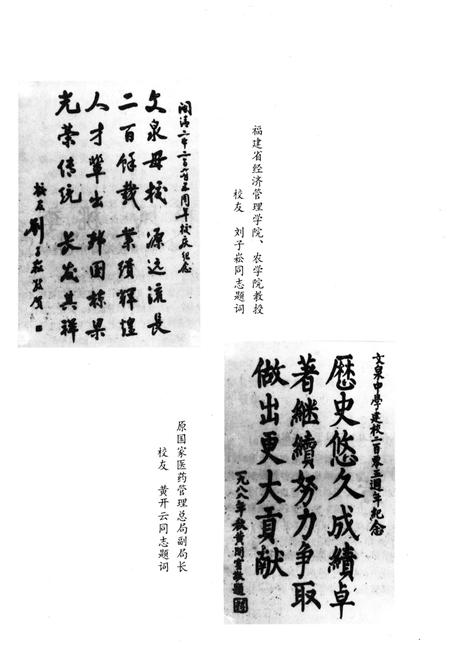 闽清一中二百零五周年校庆纪念
文泉母校 源远流长
二百馀载 業绩辉煌
人才辈出 邦国栋梁
光荣传统 长发其祥
校友
福建省经济管理学院、农学院教授
校友 刘子崧同志题词
文泉中學建校二百零五週年紀念
歷史悠久成績卓
著繼續努力爭取
做出更大貢献
一九八八年秋黄開雲敬題
原国家医药管理总局副局长
校友 黄开云同志题词